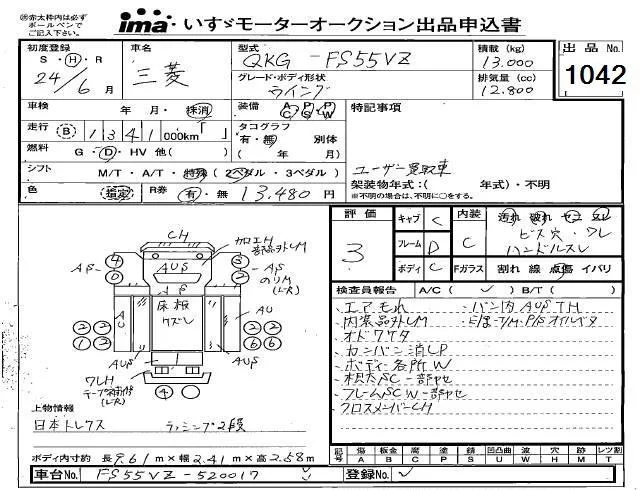 ㊟赤太枠内は必ず
ボールペンで
ご記入下さい
ima いすゞモーターオークション出品申込書
初度登録
S・H・R
24/6月
車名
三菱
型式
QKG-FS55VZ
グレード・ボディ形状
ウイング
積載 (kg)
13.000
排気量 (cc)
12.800
出品No.
1042
車検 年・月・抹消
装備 A/C P/S P/W
特記事項
走行 B 1341 000km「 」
タコグラフ
有・無 別体
( 年 月)
燃料 G・D・HV 他( )
ユーザー買取車
架装物年式:( 年式)・不明
※不明の場合は、不明に○をする。
シフト M/T・A/T・特殊(2ペダル・3ペダル)
色 指定 R券 有・無 13,480円
評価
3
キャブ C
フレーム D
ボディ C
内装
C
Fガラス
汚れ
ビス穴・ワレ
ハンドルスレ
割れ 線 点傷 イバリ
検査員報告 A/C( ) B/T( )
・エアモれ
・バン内AUSTH
・内装品外しM
・オドワケタ
・カンバン消しP
・ボディー各所W
・フレームSCW-部ヤセ
・クロスメンバーCH
CH
加工H
部品外しM
AUS
AUS
床板
クズレ
AU
AU
AUS
AUS
ワレH
上物情報
日本トレクス
ボディ内寸約 長9.61m×幅2.41m×高2.58m
記号 傷A 板金B 腐C 塗P 錆S 凹凸曲U 波W 穴H 跡X 無M レツ割T
車台No. FS55VZ-520017
登録No.